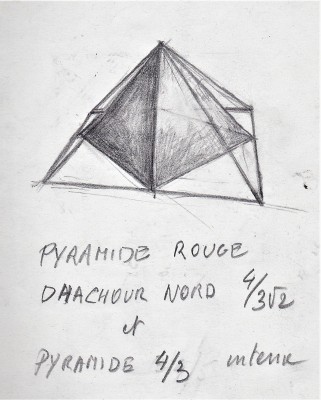 PYRAMIDE ROUGE
DHACHOUR NORD 4/3√2
et
PYRAMIDE 4/3 interne